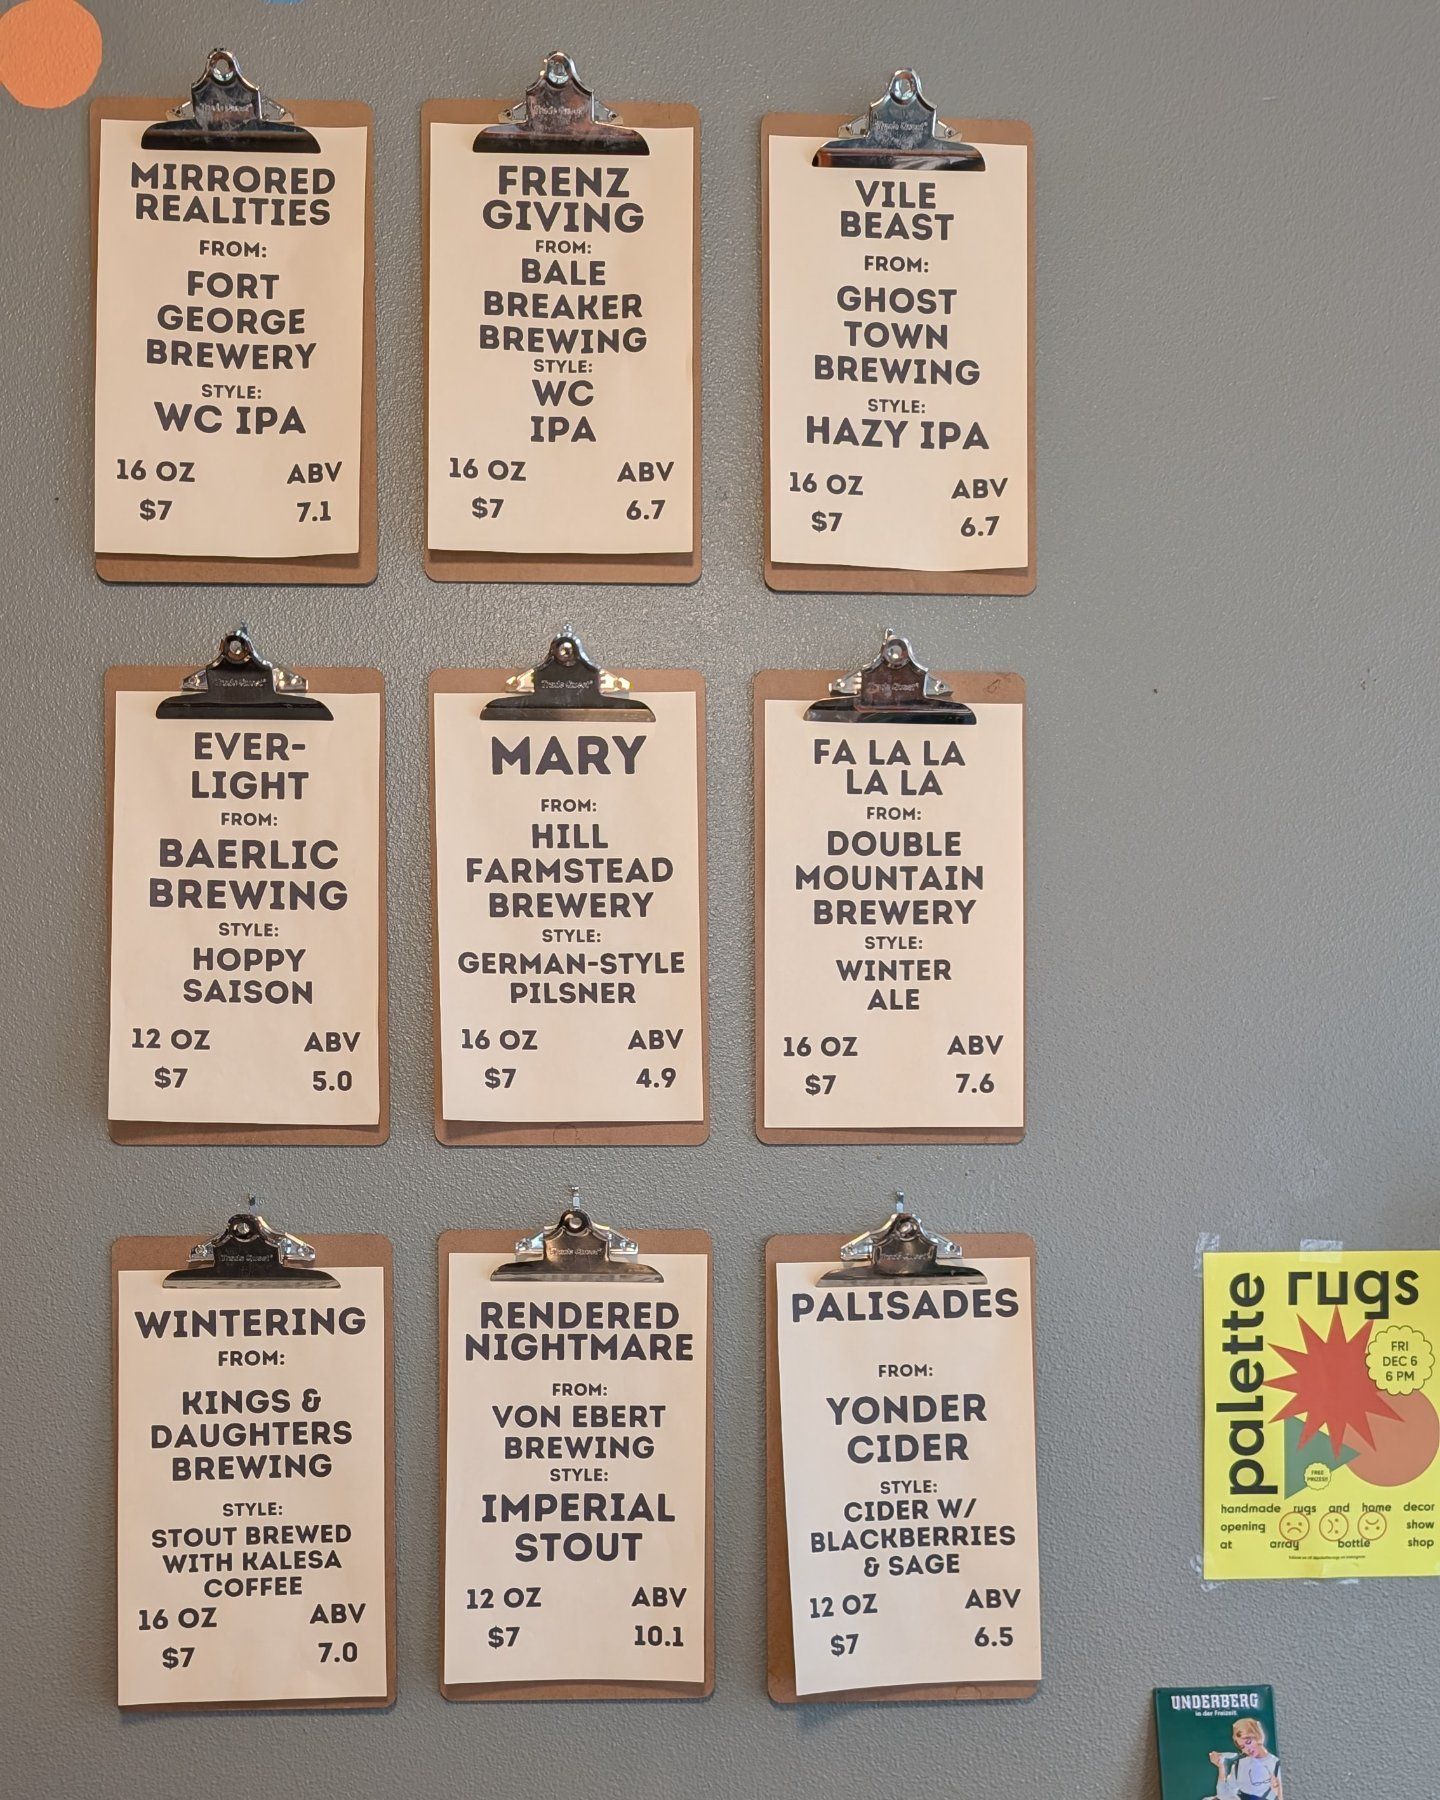 MIRRORED
REALITIES
FROM:
FORT
GEORGE
BREWERY
STYLE:
WC IPA
16 OZ ABV
$7 7.1
FRENZ
GIVING
FROM:
BALE
BREAKER
BREWING
STYLE:
WC
IPA
16 OZ ABV
$7 6.7
VILE
BEAST
FROM:
GHOST
TOWN
BREWING
STYLE:
HAZY IPA
16 OZ ABV
$7 6.7
EVER-
LIGHT
FROM:
BAERLIC
BREWING
STYLE:
HOPPY
SAISON
12 OZ ABV
$7 5.0
MARY
FROM:
HILL
FARMSTEAD
BREWERY
STYLE:
GERMAN-STYLE
PILSNER
16 OZ ABV
$7 4.9
FA LA LA
LA LA
FROM:
DOUBLE
MOUNTAIN
BREWERY
STYLE:
WINTER
ALE
16 OZ ABV
$7 7.6
WINTERING
FROM:
KINGS &
DAUGHTERS
BREWING
STYLE:
STOUT BREWED
WITH KALESA
COFFEE
16 OZ ABV
$7 7.0
RENDERED
NIGHTMARE
FROM:
VON EBERT
BREWING
STYLE:
IMPERIAL
STOUT
12 OZ ABV
$7 10.1
PALISADES
FROM:
YONDER
CIDER
STYLE:
CIDER W/
BLACKBERRIES
& SAGE
12 OZ ABV
$7 6.5
palette
rugs
FRI
DEC 6
6 PM
FREE
PRIZES!!
handmade rugs and home decor
opening show
at array bottle shop
UNDERBERG
in der Freizeit